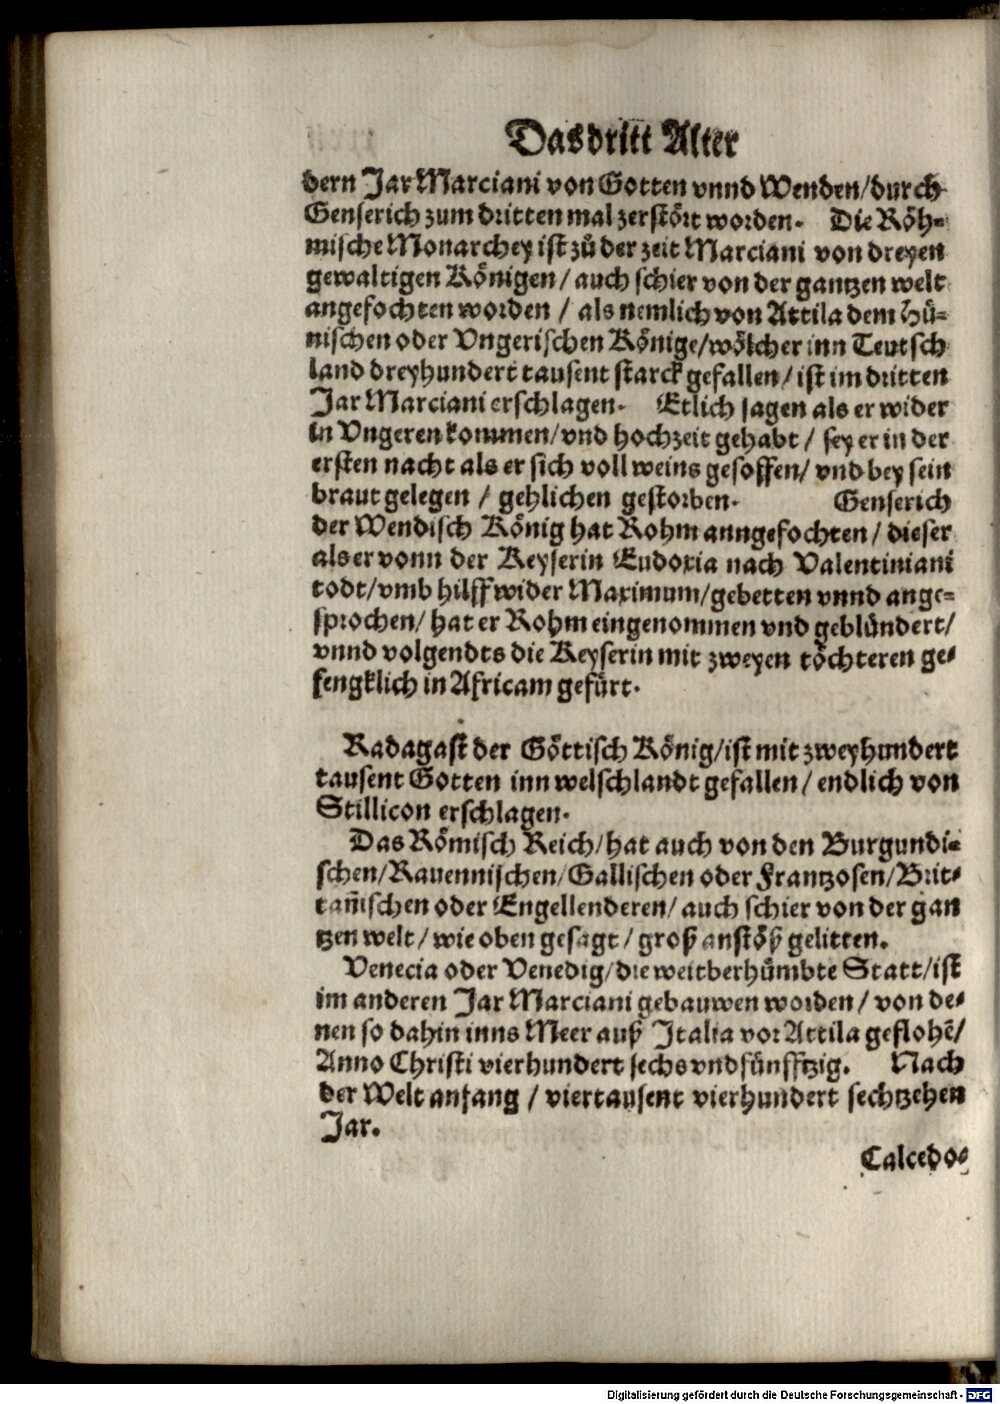 Das dritt Alter
dern Jar Marciani von Gotten vnnd Wenden/durch
Genserich zum dritten mal zerstört worden. Die Röh-
mische Monarchey ist zů der zeit Marciani von dreyen
gewaltigen Königen/ auch schier von der gantzen welt
angefochten worden / als nemlich von Attila dem Hü-
nischen oder Vngerischen Könige/wölcher inn Teutsch
land dreyhundert tausent starck gefallen/ ist im dritten
Jar Marciani erschlagen. Etlich sagen als er wider
in Vngeren kommen/vnd hochzeit gehabt / sey er in der
ersten nacht als er sich voll weins gesoffen/ vnd bey sein
braut gelegen / gehlichen gestorben. Genserich
der Wendisch König hat Rohm anngefochten/ dieser
als er vonn der Keyserin Eudoxia nach Valentiniani
todt/vmb hilff wider Maximum/gebetten vnnd ange-
sprochen/ hat er Rohm eingenommen vnd geblündert/
vnnd volgendts die Keyserin mit zweyen töchteren ge-
fengklich in Africam gefürt.
Radagast der Göttisch König/ist mit zweyhundert
tausent Gotten inn welschlandt gefallen/ endlich von
Stillicon erschlagen.
Das Römisch Reich/hat auch von den Burgundi-
schen/Rauennischen/Gallischen oder Frantzosen/Brit-
tañischen oder Engellenderen/ auch schier von der gan
tzen welt/ wie oben gesagt/ groß anstöß gelitten.
Venecia oder Venedig/die weitberhümbte Statt/ist
im anderen Jar Marciani gebauwen worden/ von de-
nen so dahin inns Meer auß Italia vor Attila geflohē/
Anno Christi vierhundert sechs vnd fünfftzig. Nach
der Welt anfang / viertausent vierhundert sechtzehen
Jar.
Calcedo-
Digitalisierung gefördert durch die Deutsche Forschungsgemeinschaft - DFG